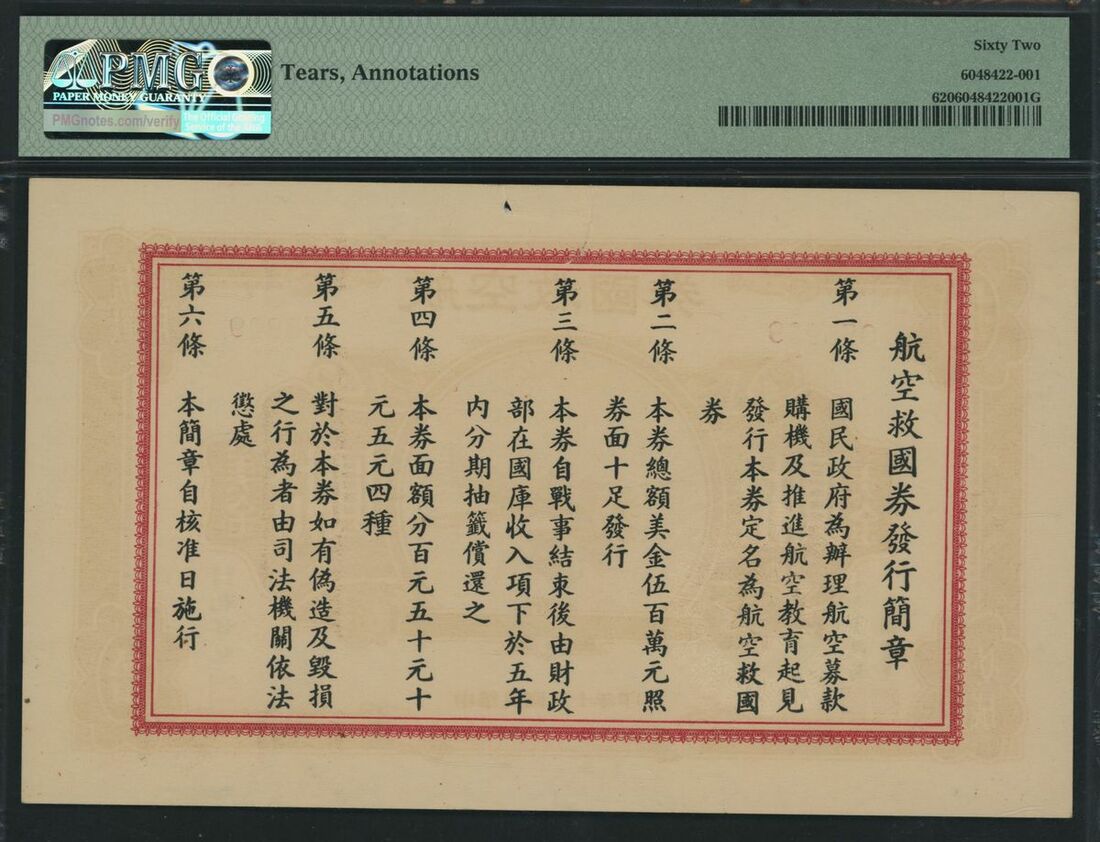 PMG
PAPER MONEY GUARANTY
PMGnotes.com/verify
The Official Grading
Service of the ANA
Tears, Annotations
Sixty Two
6048422-001
6206048422001G
航空救國券發行簡章
第一條 國民政府為辦理航空募款
購機及推進航空教育起見
發行本券定名為航空救國
券
第二條 本券總額美金伍百萬元照
券面十足發行
第三條 本券自戰事結束後由財政
部在國庫收入項下於五年
內分期抽籤償還之
第四條 本券面額分百元五十元十
元五元四種
第五條 對於本券如有偽造及毀損
之行為者由司法機關依法
懲處
第六條 本簡章自核准日施行